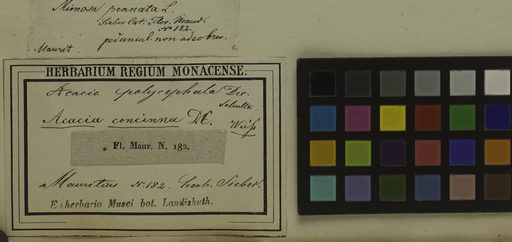 Mimosa pennata L.
Sieber Col. Flor. Maur.
N° 182.
pedunculi non adeo brev.
Maurit.
HERBARIUM REGIUM MONACENSE.
Acacia polycephala Dec.
Schultz.
Acacia concinna DC.
Fl. Maur. N. 182.
Mauritius N. 182. herb. Sieber.
E herbario Musei bot. Landishuth.